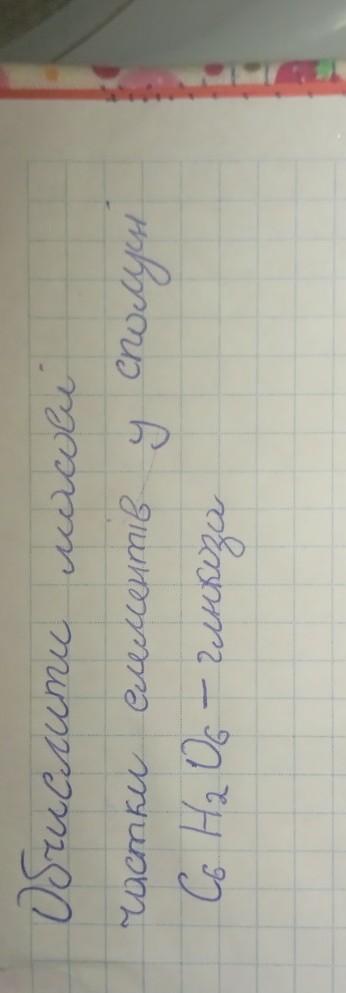 Обчислити масові
частки елементів у сполуці
C₆ H₂ O₆ – глюкоза